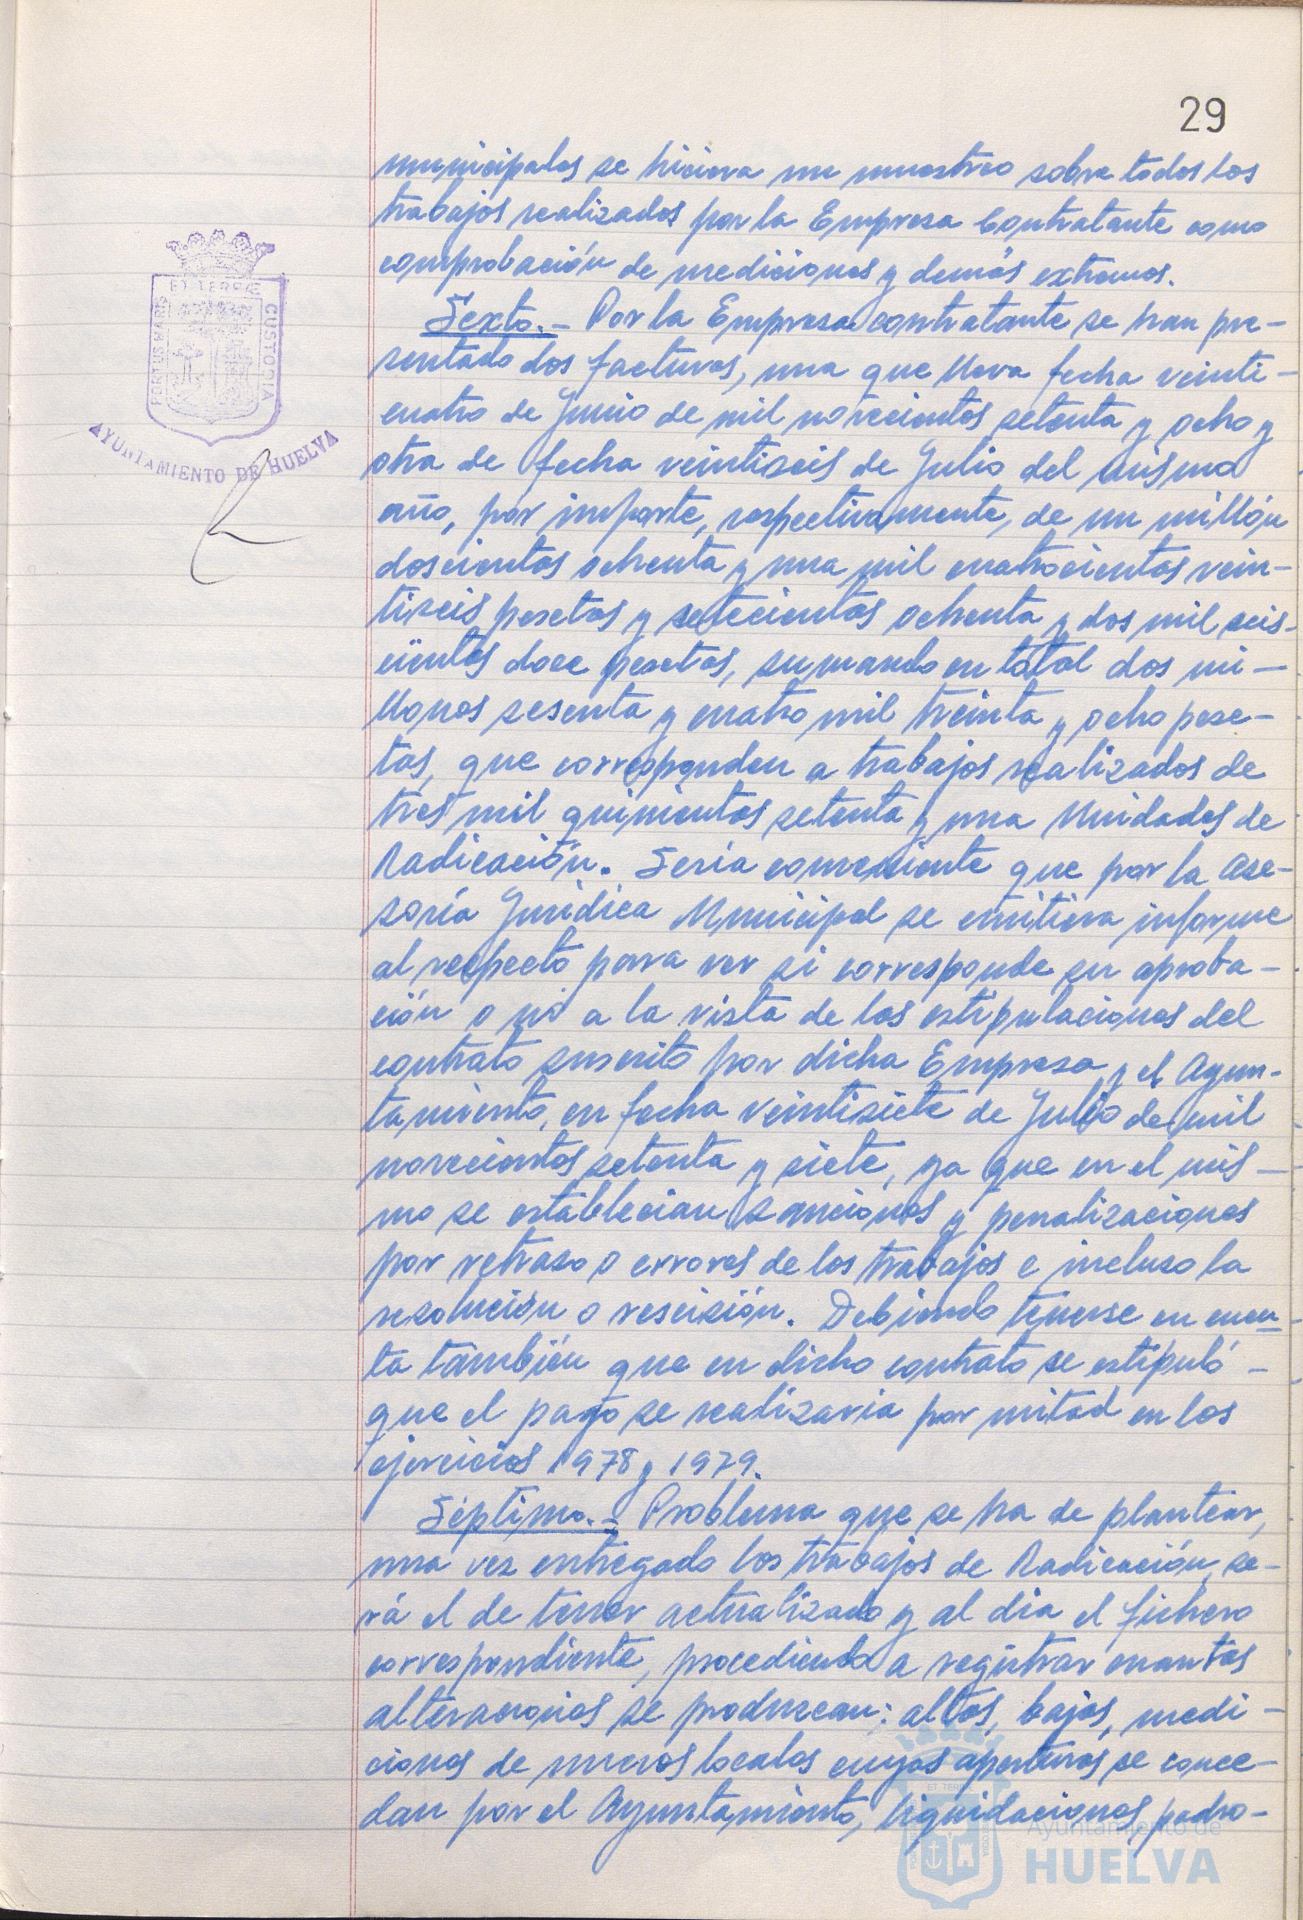 29
municipales se hiciera un muestreo sobre todos los
trabajos realizados por la Empresa Contratante como
comprobación de mediciones y demás extremos.
Sexto.- Por la Empresa contratante se han pre-
sentado dos facturas, una que lleva fecha veinti-
cuatro de Junio de mil novecientos setenta y ocho y
otra de fecha veintiseis de Julio del mismo
año, por importe, respectivamente, de un millón
doscientas ochenta y una mil cuatrocientas vein-
tiseis pesetas y setecientas ochenta y dos mil seis-
cientas doce pesetas, sumando en total dos mi-
llones sesenta y cuatro mil treinta y ocho pese-
tas, que corresponden a trabajos realizados de
tres mil quinientas setenta y una Unidades de
Radicación. Sería conveniente que por la Ase-
soría Jurídica Municipal se emitiera informe
al respecto para ver si corresponde su aproba-
ción o no a la vista de las estipulaciones del
contrato suscrito por dicha Empresa y el Ayun-
tamiento, en fecha veintisiete de Julio de mil
novecientos setenta y siete, ya que en el mis-
mo se establecian sanciones y penalizaciones
por retraso o errores de los trabajos e incluso la
resolución o rescisión. Debiendo tenerse en cuen-
ta también que en dicho contrato se estipuló
que el pago se realizaria por mitad en los
ejercicios 1978 y 1979.
Séptimo.- Problema que se ha de plantear,
una vez entregado los trabajos de Radicación, se-
rá el de tener actualizado y al dia el fichero
correspondiente, procediendo a registrar cuantas
alteraciones se produzcan: altas, bajas, medi-
ciones de nuevos locales cuyas aperturas se conce-
dan por el Ayuntamiento, liquidaciones, padro-
ET TERRE
PORTUS MARIS
CUSTODIA
AYUNTAMIENTO DE HUELVA
Ayuntamiento de
HUELVA